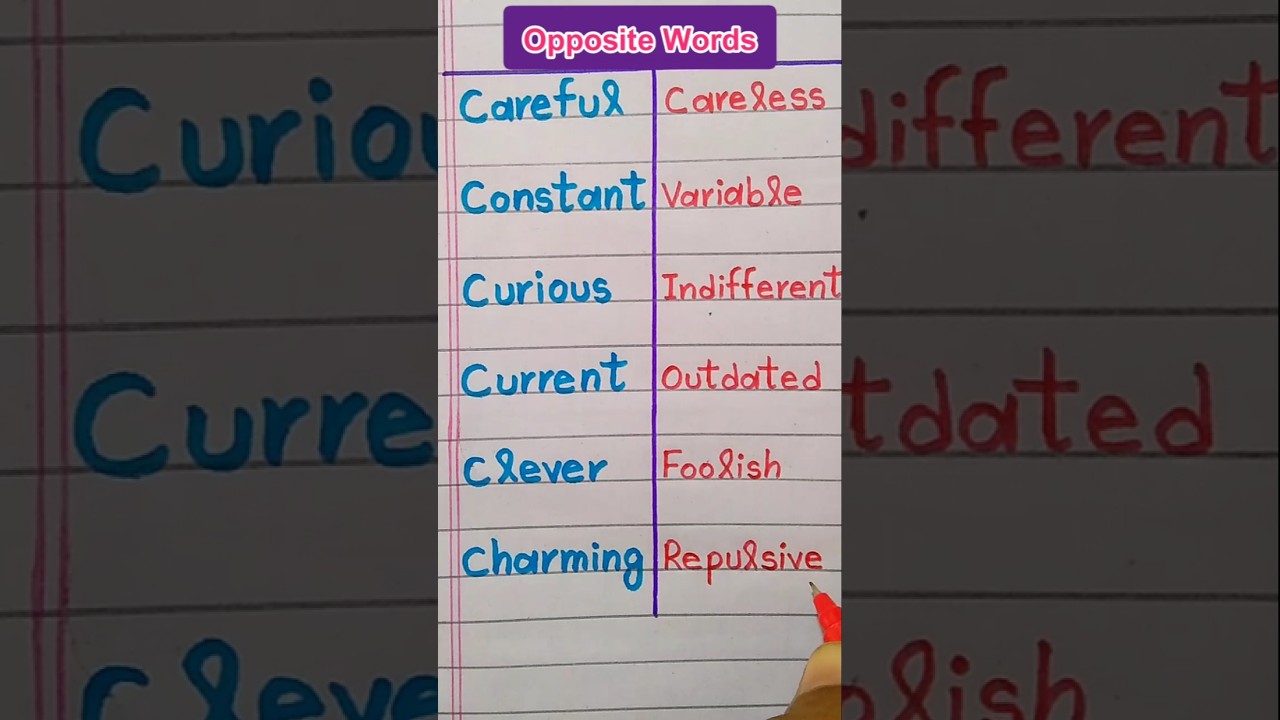 Opposite Words
Careful Careless
Constant Variable
Curious Indifferent
Current Outdated
Clever Foolish
Charming Repulsive